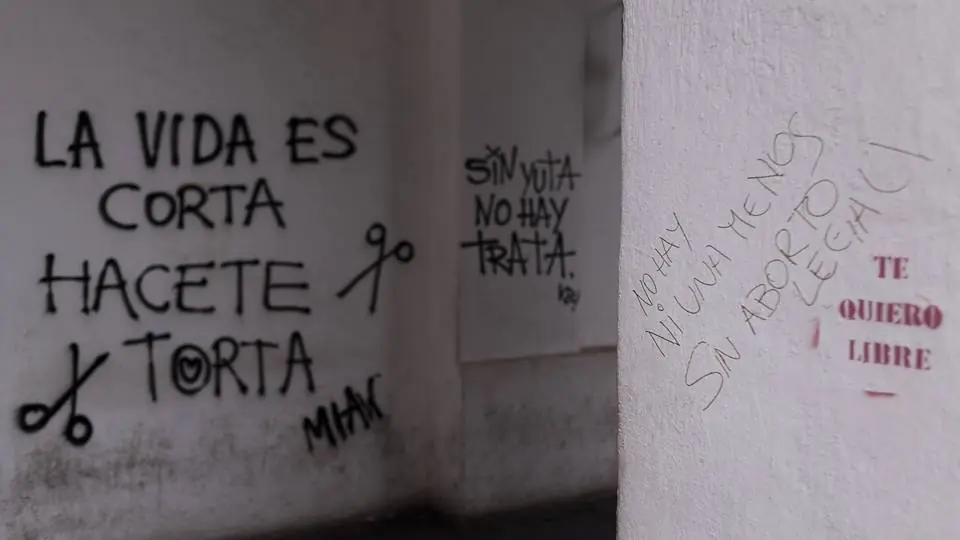 LA VIDA ES
CORTA
HACETE
TORTA
MIAU
SIN YUTA
NO HAY
TRATA.
NO HAY
NI UNA MENOS
SIN ABORTO
LEGAL
TE
QUIERO
LIBRE